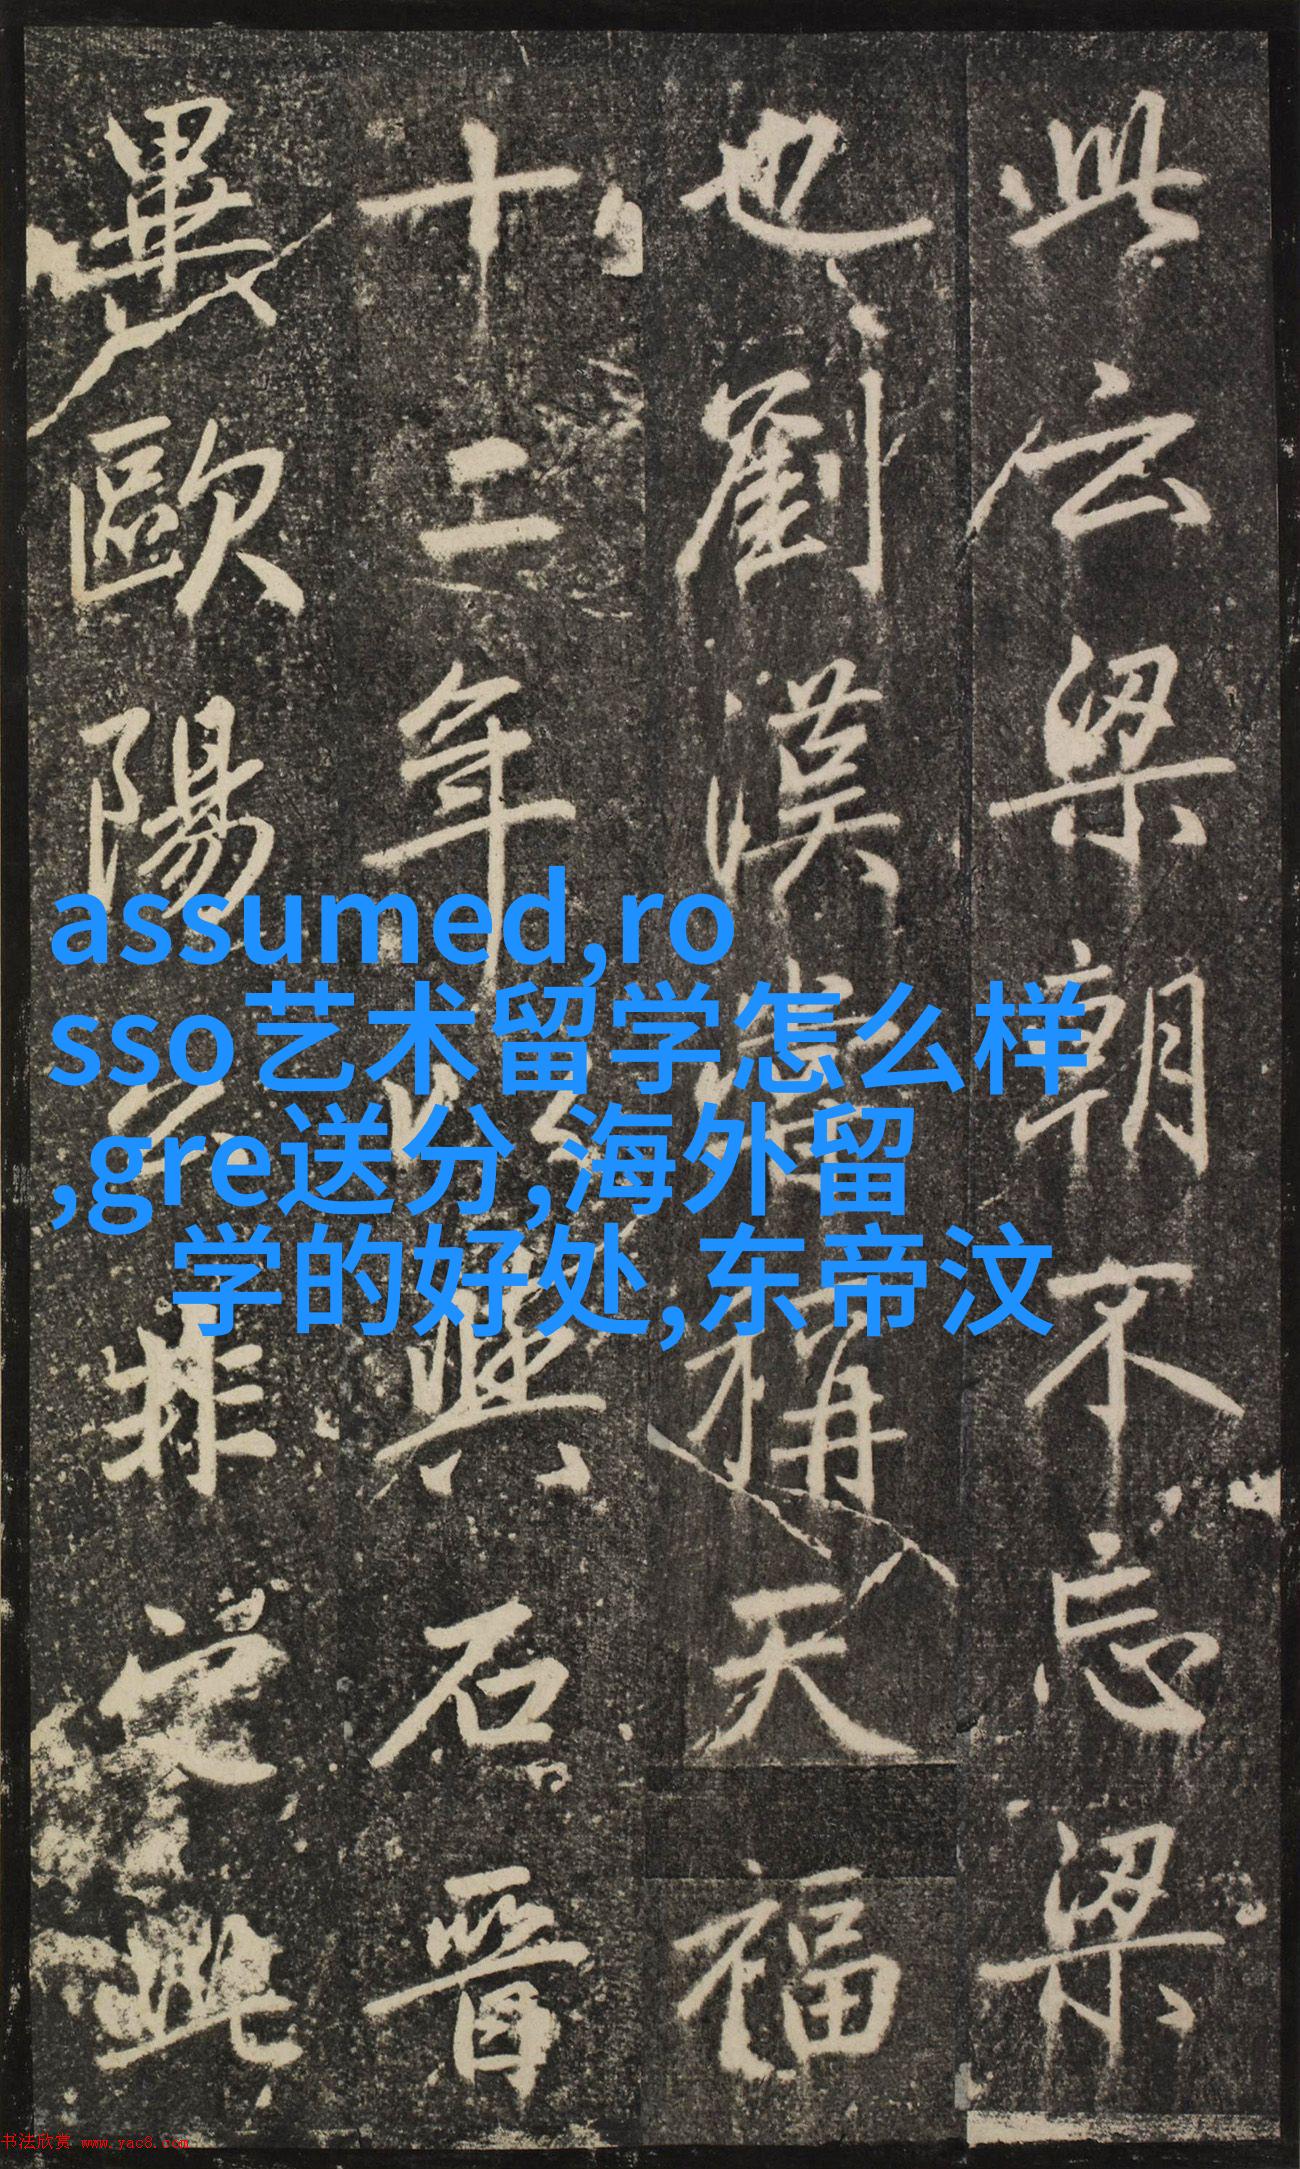 此云梁朝不忘梁
也劉漢書稱天福
十二年以與石晉
畢歐陽云非定此
assumed,ro
sso艺术留学怎么样
,gre送分,海外留
学的好处,东帝汶
书法欣赏 www.yac8.com